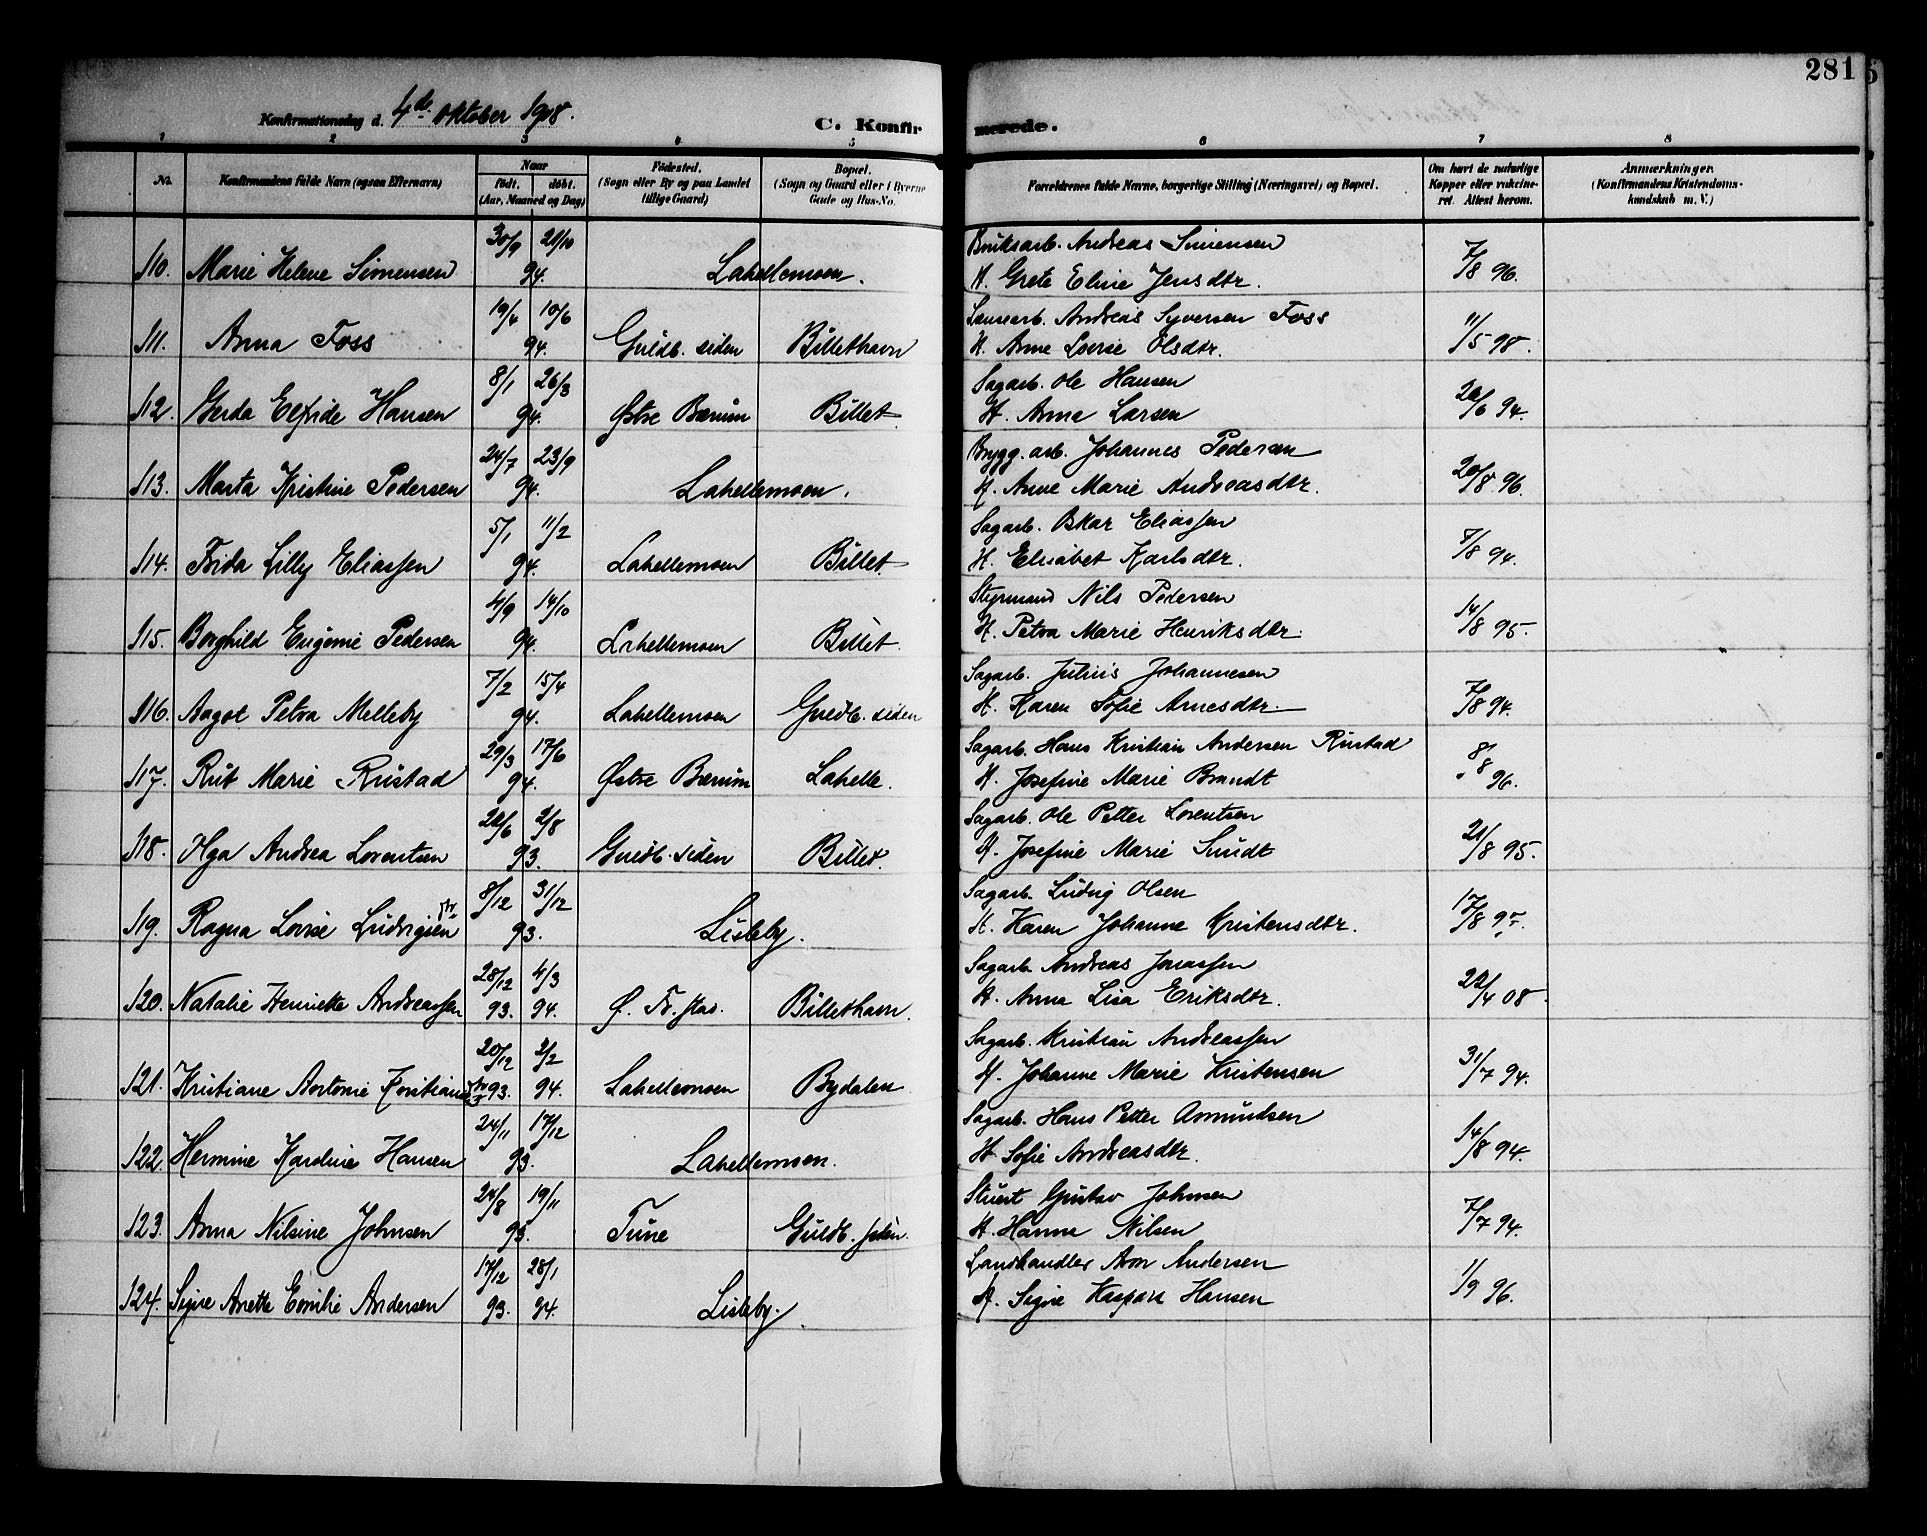 281
Konfirmationsdag d. 4de Oktober 1908.
C. Konfirmerede.
1 2 3 4 5 6 7 8
No.
Konfirmandens fulde Navn (ogsaa Efternavn)
Naar
födt. döbt.
(Aar, Maaned og Dag)
Födested.
(Sogn eller By og paa Landet
tillige Gaard)
Bopæl.
(Sogn og Gaard eller i Byerne
Gade og Hus-No.
Forældrenes fulde Navne, borgerlige Stilling (Næringsvei) og Bopæl.
Om havt de naturlige
Kopper eller vakcine-
ret. Attest herom.
Anmærkninger.
(Konfirmandens Kristendoms-
kundskab m. V.)
30/9 21/10 Bruksarb. Andreas Simensen
110. Marie Helene Simensen 94. Lahellemoen. H. Grete Eline Jensdtr. 7/8 96.
19/4 10/6 Andreas Syversen Foss
111. Anna Foss 94. Guldb. siden Billethavn H. Anne Lovise Olsdtr. 11/5 98.
8/1 26/3 Sagarb. Ole Hansen
112. Gerda Elfride Hansen 94. Østre Bærum Billet H. Anna Larsen 94.
24/7 23/9 Brygg. arb. Johannes Pedersen
113. Marta Kristine Pedersen 94. Lahellemoen. H. Anne Marie Andreasdtr. 20/8 96.
5/1 11/2 Sagarb. Oskar Eliassen
114. Frida Lilly Eliassen 94. Lahellemoen Billet H. Elisabet Karlsdtr. 7/8 94.
4/9 14/10 Styrmand Nils Pedersen
115. Borghild Eugenie Pedersen 94. Lahellemoen Billet. H. Petra Marie Henriksdtr. 14/8 95.
7/2 15/4 Sagarb. Julius Johannesen
116. Aagot Petra Melleby 94. Lahellemoen Guldb. siden H. Karen Sofie Arnesdtr. 7/8 94.
29/3 17/6 Sagarb. Hans Kristian Andersen Rustad
117. Rut Marie Rustad 94. Østre Bærum Lahelle. H. Josefine Marie Brandt 8/8 96.
2/8 Sagarb. Ole Petter Lorentsen
118. Olga Andrea Lorentsen 93. Guldb. siden Billet. H. Josefine Marie Sundt 21/8 95.
8/12 31/12 Sagarb. Ludvig Olsen
119. Ragna Lovise Ludvigsen 93. Lisleby. H. Karen Johanne Kristensdtr.
28/12 4/3 Sagarb. Andreas Jonassen
120. Natalie Henriette Andreassen 93. 94. Ø. Fr.stad. Billethavn. H. Anna Lisa Eriksdtr. 22/4 08.
20/12 2/2 Sagarb. Kristian Andreassen
121. Kristiane Antonie 93. 94. Lahellemoen Bydalen H. Johanne Marie Kristensen 31/7 94.
24/11 17/12 Sagarb. Hans Petter Amundsen
122. Hermine Karoline Hansen 93. Lahellemoen. H. Sofie Andreasdtr. 14/8 94.
24/8 19/11 Stuert Gustav Johnsen
123. Anna Nilsine Johnsen 93. Tune Guldb. siden. H. Hanna Nilsen 7/7 94.
17/12 28/1 Landhandler Aron Andersen
124. Signe Anette Emilie Andersen 93. 94. Lisleby. H. Signe Kaspara Hansen 1/9 96.